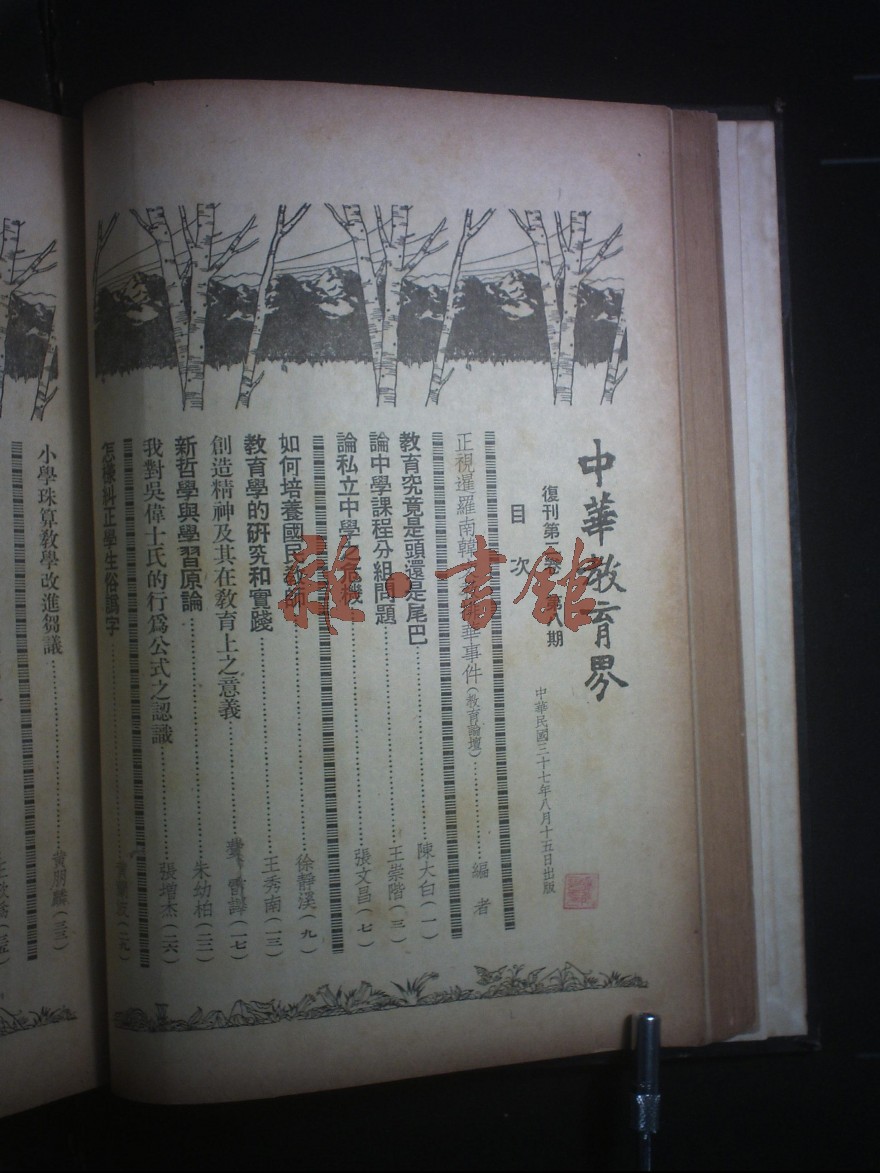 中華教育界
復刊第二卷 第八期
中華民國三十七年八月十五日出版
目次
正視暹羅南韓 華事件(教育論壇) 編者
教育究竟是頭還是尾巴 陳大白(一)
論中學課程分組問題 王崇階(三)
論私立中學之危機 張文昌(七)
如何培養國民教師 徐靜溪(九)
教育學的研究和實踐 王秀南(一三)
創造精神及其在教育上之意義 (一七)
新哲學與學習原論 朱幼柏(二二)
我對吳偉士氏的行爲公式之認識 張增杰(二六)
怎樣糾正學生俗譌字 (二九)
小學珠算教學改進芻議
雅·書館